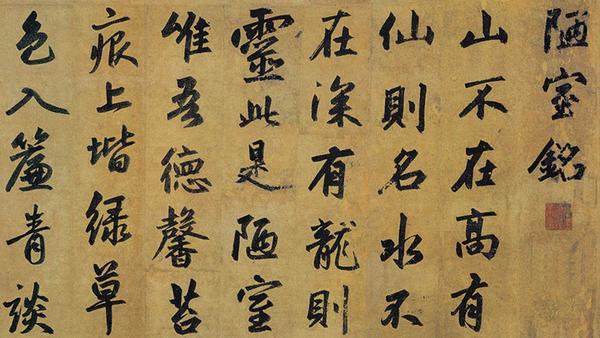 陋室銘
山不在高有
仙則名水不
在深有龍則
靈此是陋室
惟吾德馨苔
痕上堦緑草
色入簾青談